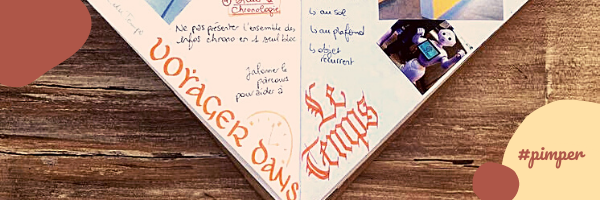 Chronologie
Ne pas présenter l'ensemble des
infos chrono en 1 seul bloc
Jalonner le
parcours
pour aider à
VOYAGER DANS
↳ au sol
↳ au plafond
↳ objet
récurrent
Le
Temps
#pimper